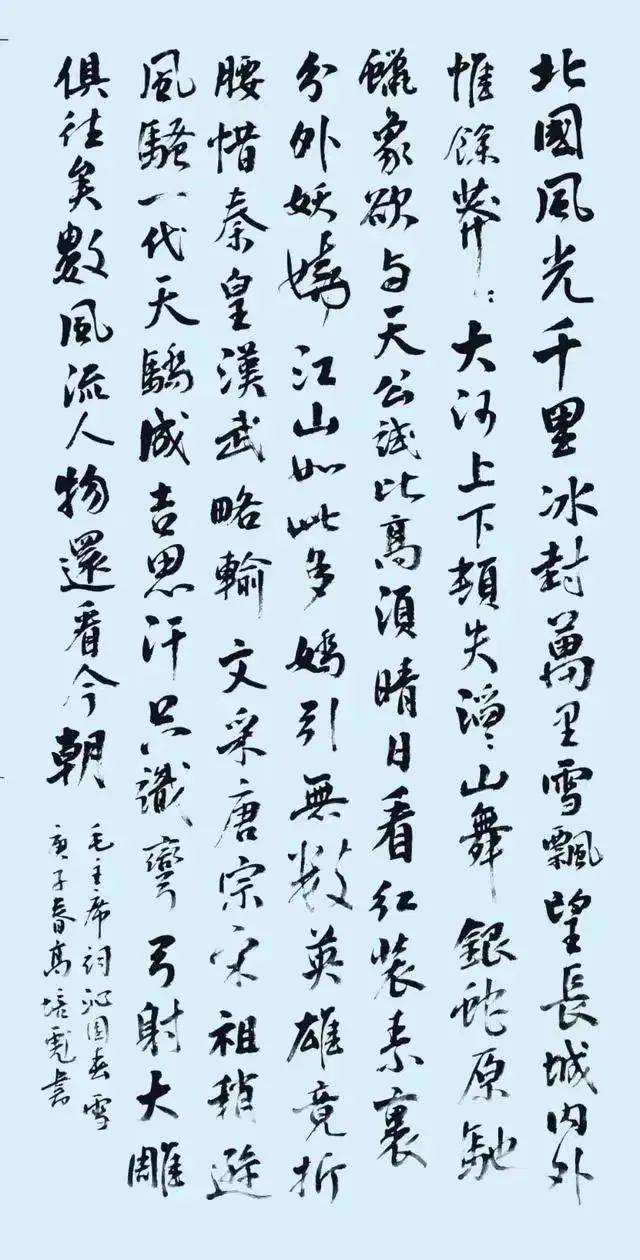 北國風光千里冰封萬里雪飄望長城内外
惟餘莽〻大河上下頓失滔〻山舞銀蛇原馳
蠟象欲与天公試比高須晴日看紅裝素裹
分外妖嬈江山如此多嬌引無数英雄竟折
腰惜秦皇漢武略輸文采唐宗宋祖稍遜
風騷一代天驕成吉思汗只識彎弓射大雕
俱往矣數風流人物還看今朝
毛主席詞沁园春雪
庚子春高培書